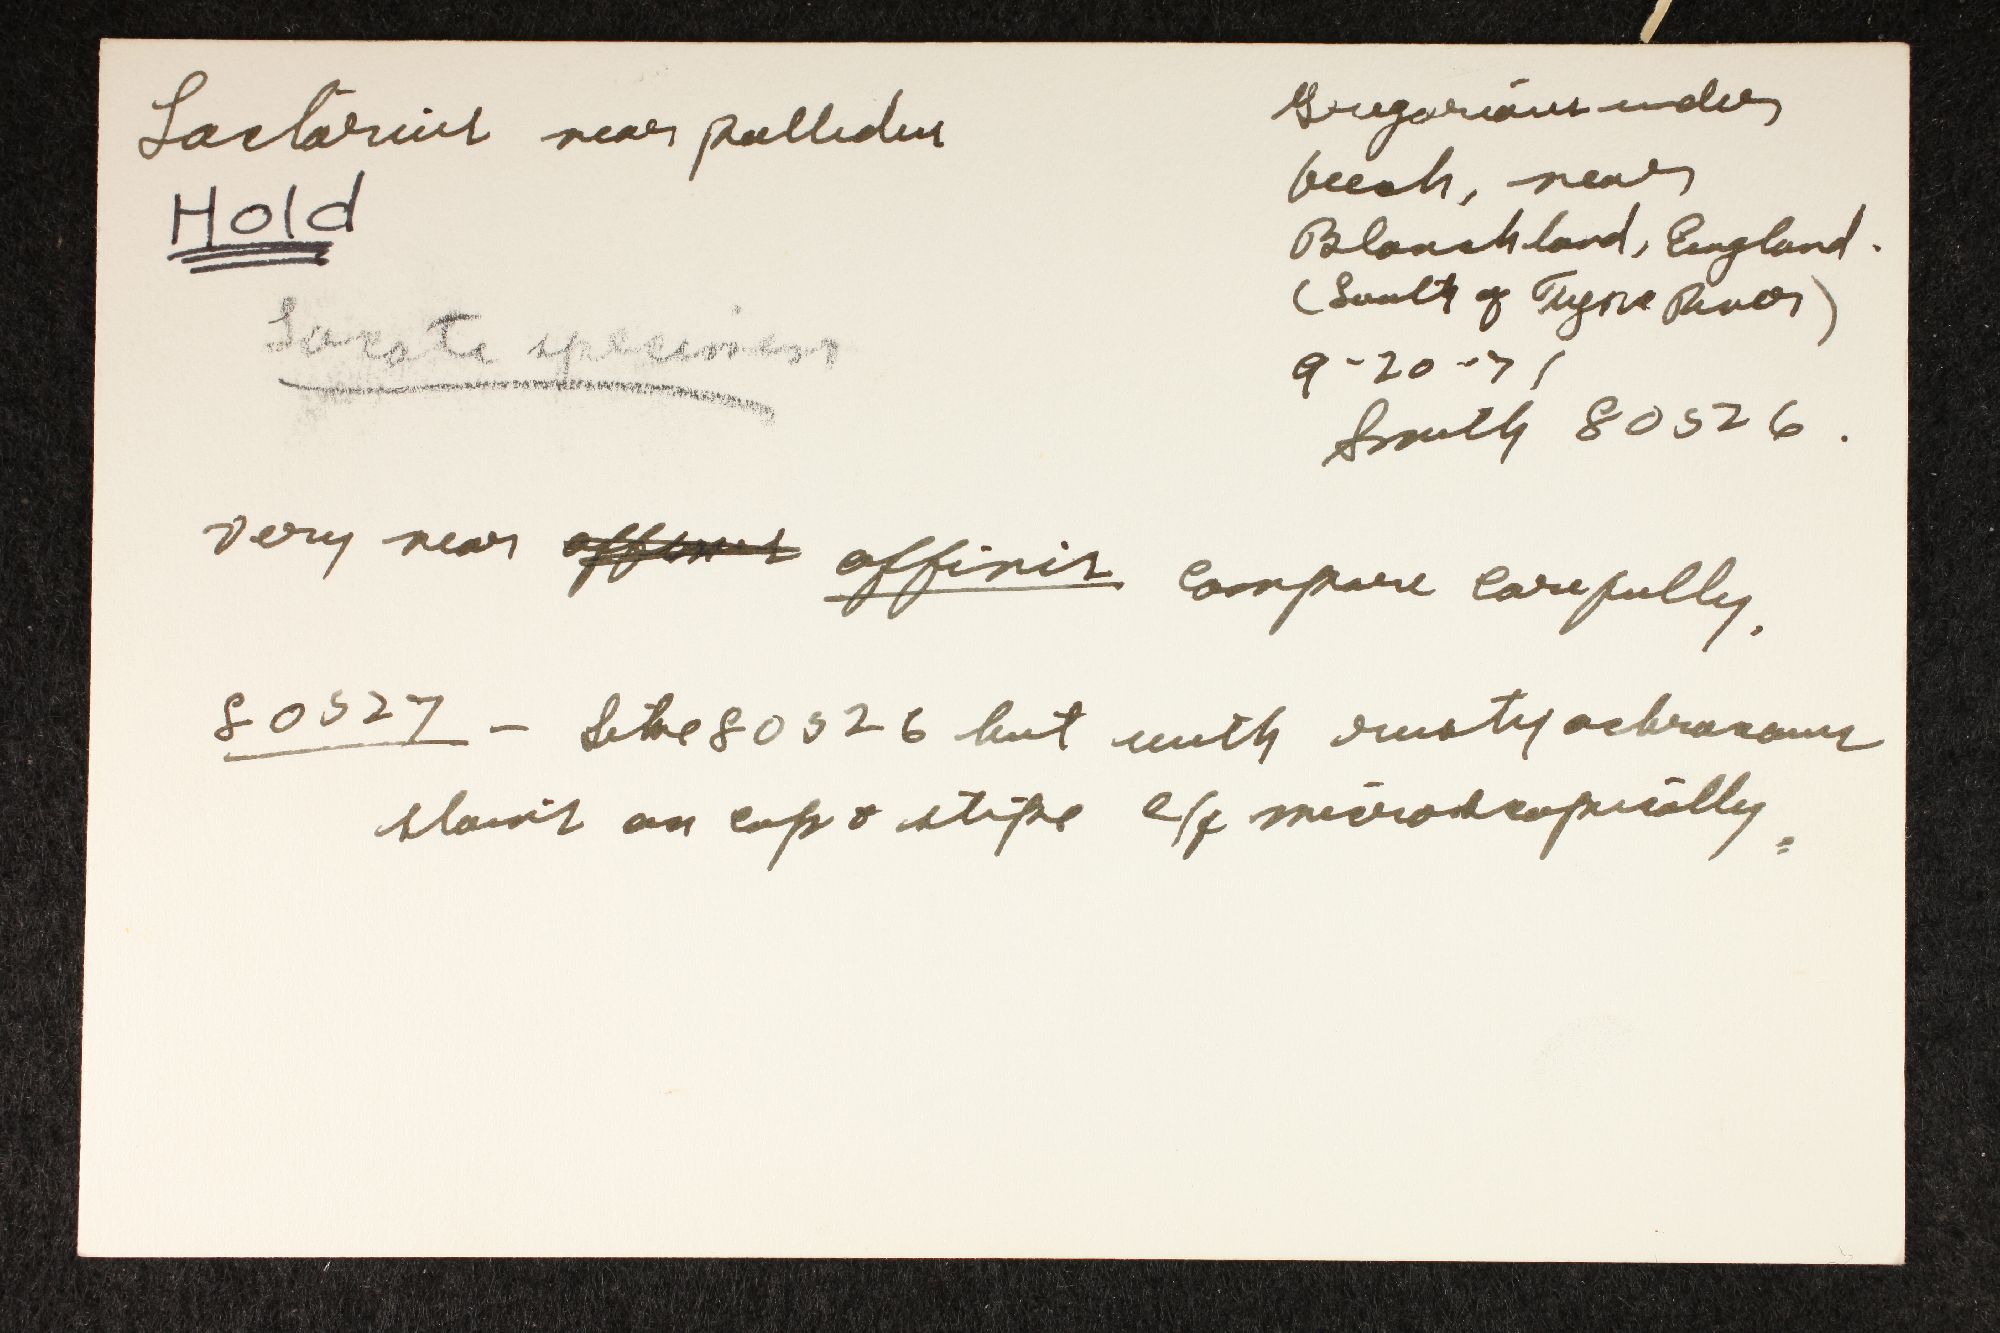 Lactarius near pallidus
Hold
Locate specimens
Gregarious under
beech, near
Blanchland, England.
(South of Tyne River)
9-20-71
Smith 80526.
Very near affinis affinis compare carefully.
80527 - Like 80526 but with rusty ochraceous
stains on cap & stipe c/f microscopically.